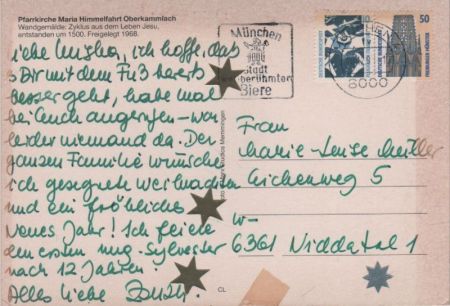 Pfarrkirche Maria Himmelfahrt Oberkammlach
Wandgemälde: Zyklus aus dem Leben Jesu,
entstanden um 1500. Freigelegt 1968.
liebe ich hoffe, daß
es Dir mit dem Fuß bereits
besser geht, habe mal
bei euch angerufen – war
leider niemand da. Der
ganzen Familie wünsche
ich gesegnete Weihnachten
und ein fröhliches
Neues Jahr! Ich feiere
den ersten Sylvester
nach 12 Jahren.
Alles liebe
München
Stadt
berühmter
Biere
8000
50
Frau
Marie-Luise Müller
Eichenweg 5
W-
6361 Niddatal 1
CL